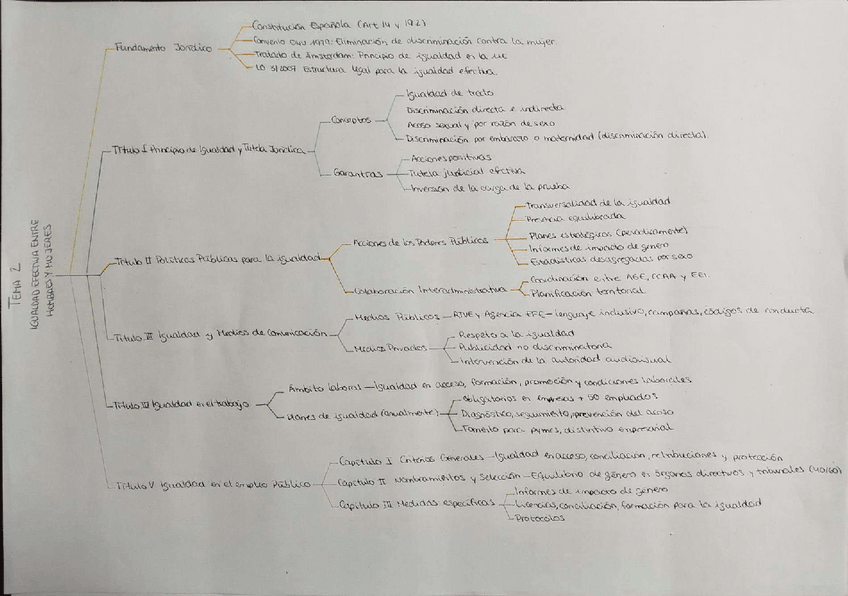 TEMA 2
IGUALDAD EFECTIVA ENTRE
HOMBRES Y MUJERES
Fundamento Jurídico
Constitución Española (Art 14 y 9.2)
Convenio ONU 1979: Eliminación de discriminación contra la mujer.
Tratado de Ámsterdam: Principio de igualdad en la UE
LO 3/2007 Estructura legal para la igualdad efectiva.
Título I Principio de Igualdad y Tutela Jurídica
Conceptos
Igualdad de trato
Discriminación directa e indirecta
Acoso sexual y por razón de sexo
Discriminación por embarazo o maternidad (discriminación directa)
Garantías
Acciones positivas
Tutela judicial efectiva
Inversión de la carga de la prueba
Título II Políticas Públicas para la igualdad
Acciones de los Poderes Públicos
Transversalidad de la igualdad
Presencia equilibrada
Planes estratégicos (periodicamente)
Informes de impacto de género
Estadísticas desagregadas por sexo
Colaboración Interadministrativa
Coordinación entre AGE, CCAA y EELL
Planificación territorial
Título III Igualdad y Medios de Comunicación
Medios Públicos — RTVE y Agencia EFE - lenguaje inclusivo, campañas, códigos de conducta
Medios Privados
Respeto a la igualdad
Publicidad no discriminatoria
Intervención de la autoridad audiovisual
Título IV Igualdad en el trabajo
Ámbito laboral — Igualdad en acceso, formación, promoción y condiciones laborales
Planes de igualdad (anualmente)
Obligatorios en empresas + 50 empleados
Diagnóstico, seguimiento, prevención del acoso
Fomento para pymes, distintivo empresarial
Título V Igualdad en el empleo Público
Capítulo I Criterios Generales — Igualdad en acceso, conciliación, retribuciones y protección
Capítulo II Nombramientos y Selección — Equilibrio de género en órganos directivos y tribunales (40/60)
Capítulo III Medidas específicas
Informes de impacto de género
Licencias, conciliación, formación para la igualdad
Protocolos